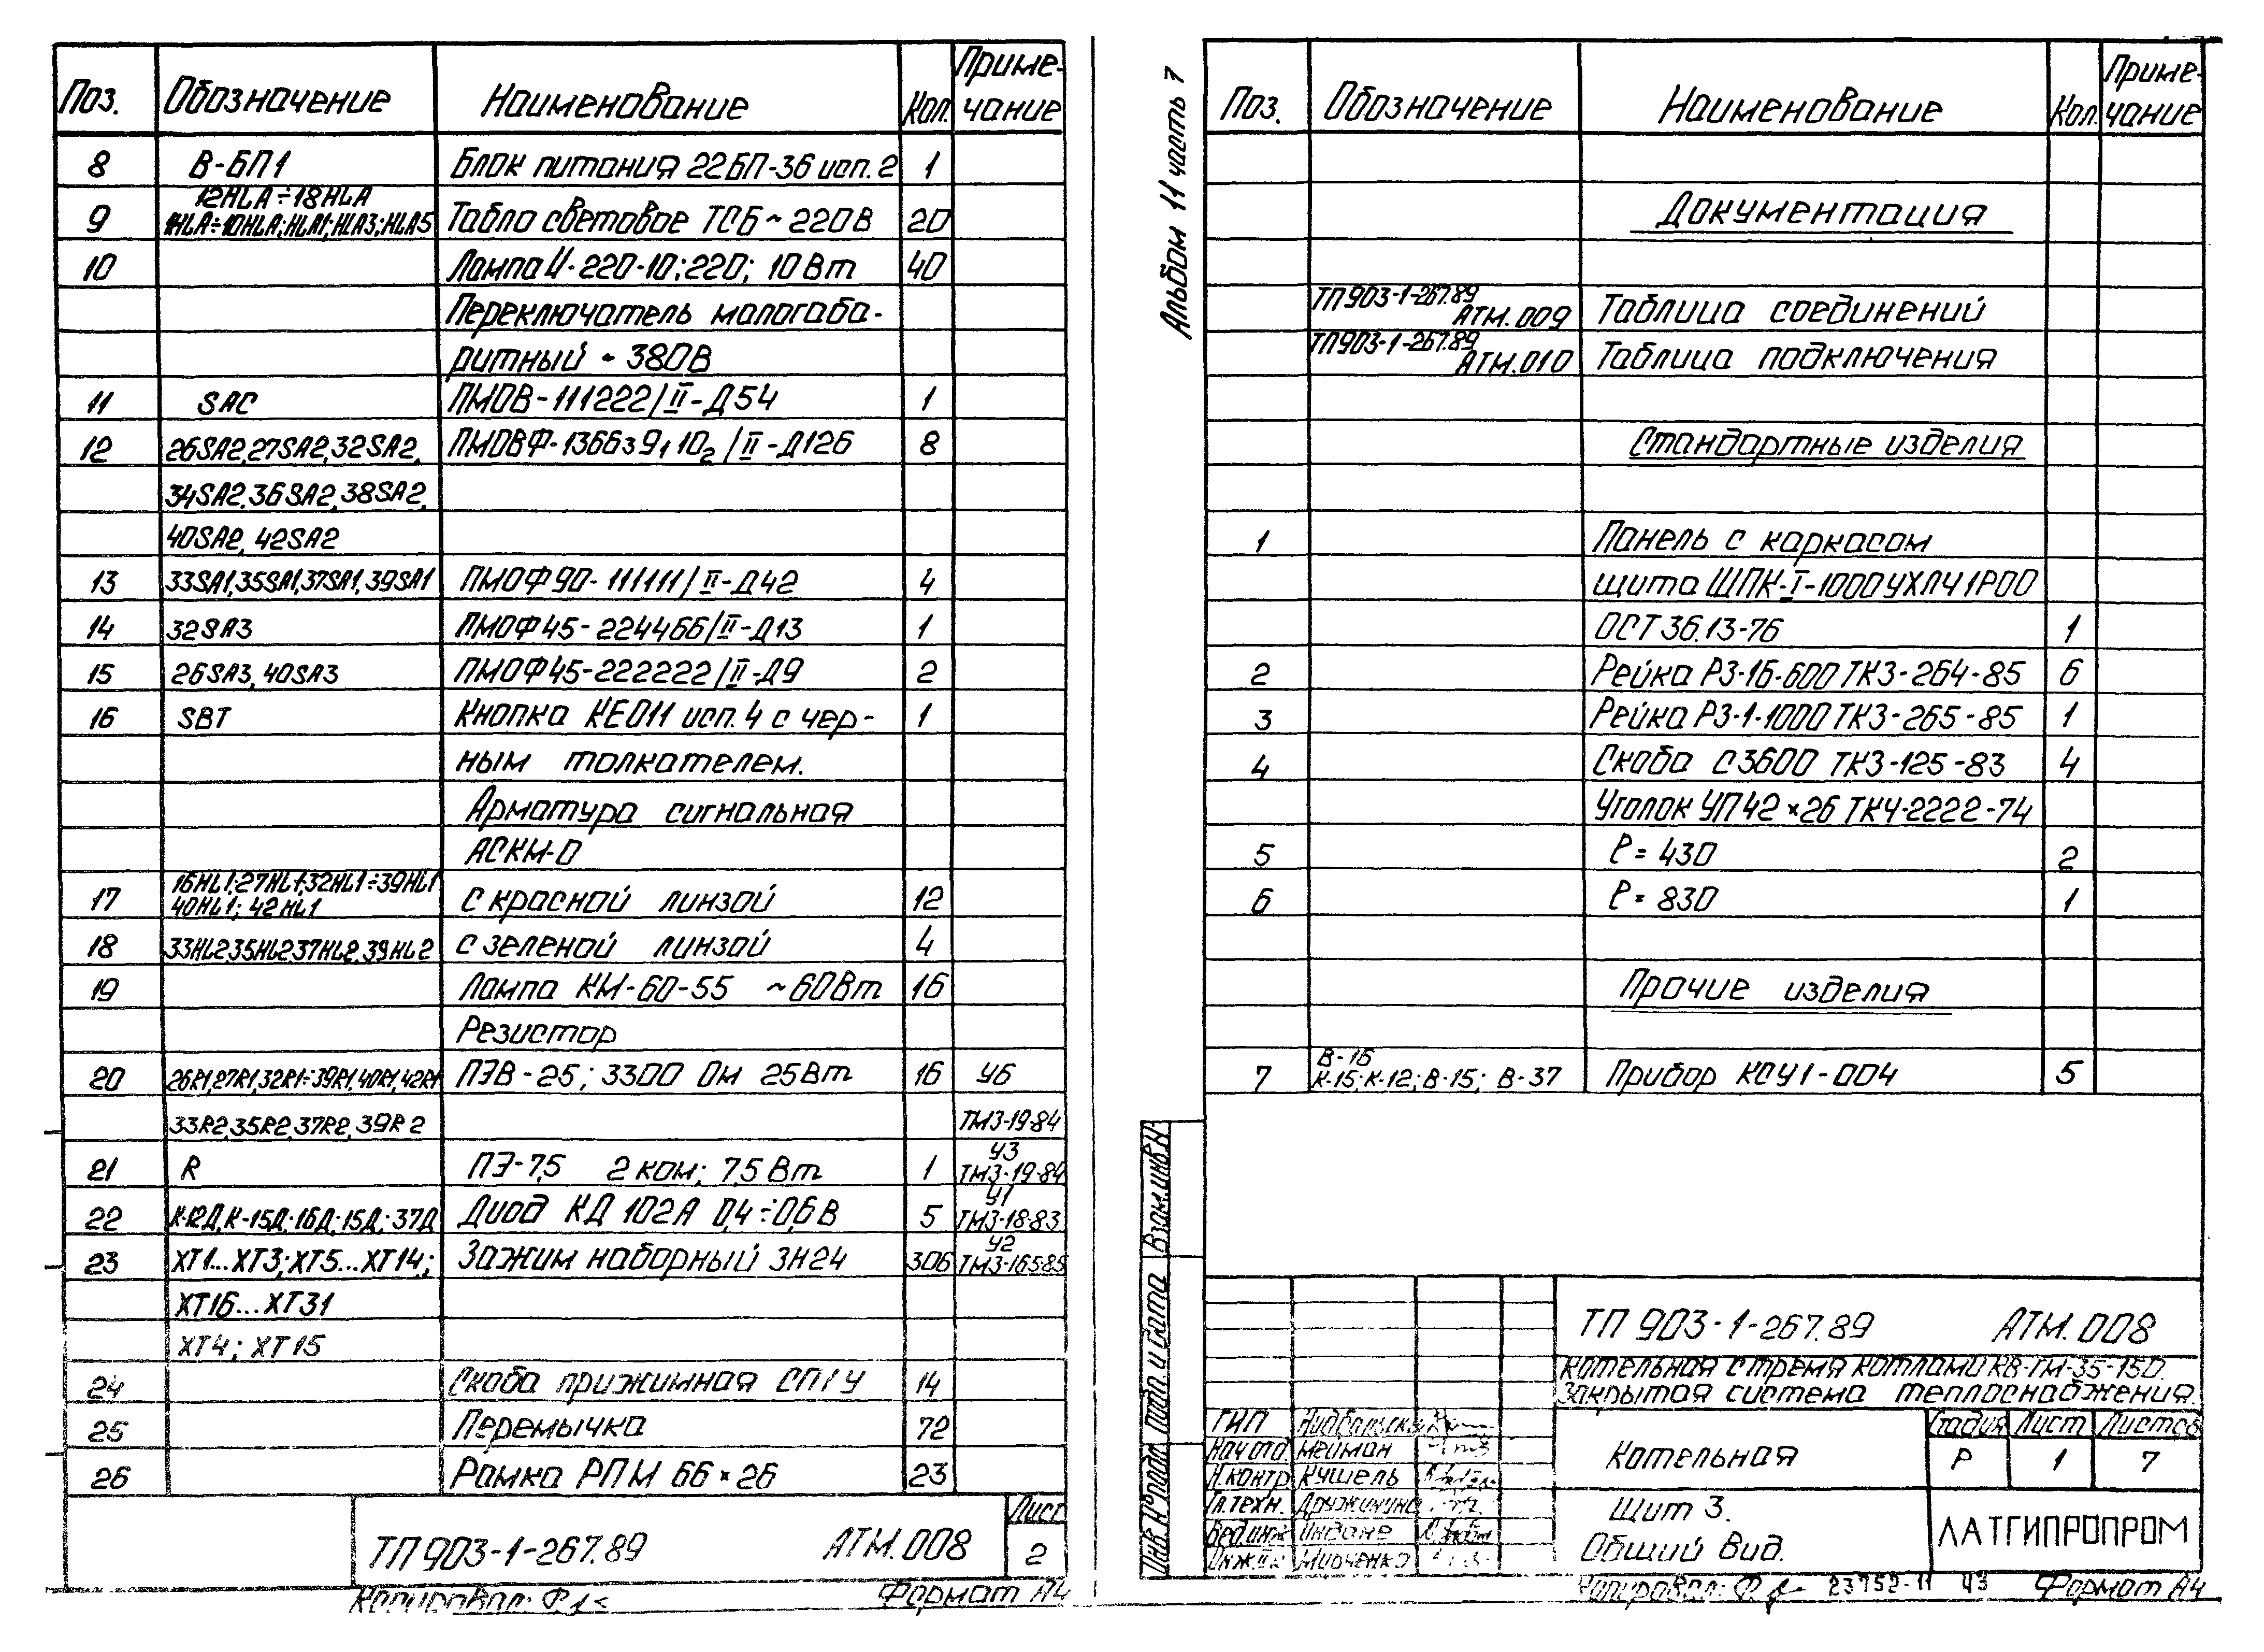 Поз. Обозначение Наименование Кол. Приме-
чание
8 В-БП1 Блок питания 22БП-36 исп. 2 1
12HLA÷18HLA
9 1HLA÷10HLA; HLA1; HLA3; HLA5 Табло световое ТСБ ~ 220В 20
10 Лампа Ц-220-10; 220; 10 Вт 40
Переключатель малогаба-
ритный ~ 380В
11 SAC ПМОВ-111222/II-Д54 1
12 26SA2, 27SA2, 32SA2, ПМОВФ-1366з9₁10₂/II-Д126 8
34SA2, 36SA2, 38SA2,
40SA2, 42SA2
13 33SA1, 35SA1, 37SA1, 39SA1 ПМОФ90-111111/II-Д42 4
14 32SA3 ПМОФ45-224466/II-Д13 1
15 26SA3, 40SA3 ПМОФ45-222222/II-Д9 2
16 SBT Кнопка КЕ011 исп. 4 с чер- 1
ным толкателем.
Арматура сигнальная
АСКМ-О
16HL1; 27HL1; 32HL1÷39HL1
17 40HL1; 42HL1 с красной линзой 12
18 33HL2, 35HL2, 37HL2, 39HL2 с зеленой линзой 4
19 Лампа КМ-60-55 ~60Вт 16
Резистор
20 26R1, 27R1, 32R1÷39R1, 40R1, 42R1 ПЭВ-25; 3300 Ом 25Вт 16 У6
33R2, 35R2, 37R2, 39R2 ТМ3-19-84
У3
21 R ПЭ-7,5 2 ком; 7,5 Вт 1 ТМ3-19-84
У1
22 К-12Д, К-15Д; 16Д; 15Д; 37Д Диод КД 102А 0,4÷0,6 В 5 ТМ3-18-83
У2
23 ХТ1...ХТ3; ХТ5...ХТ14; Зажим наборный ЗН24 306 ТМ3-165-85
ХТ16...ХТ31
ХТ4; ХТ15
24 Скоба прижимная СП1У 14
25 Перемычка 72
26 Рамка РПМ 66×26 23
Лист
ТП 903-1-267.89 АТМ.008 2
Копировал: Формат А4
Альбом 11 часть 7
Поз. Обозначение Наименование Кол. Приме-
чание
Документация
ТП903-1-267.89
АТМ.009 Таблица соединений
ТП903-1-267.89
АТМ.010 Таблица подключения
Стандартные изделия
1 Панель с каркасом
щита ЩПК-I-1000 УХЛ4 IP00
ОСТ 36.13-76 1
2 Рейка Р3-16-600 ТК3-264-85 6
3 Рейка Р3-1-1000 ТК3-265-85 1
4 Скоба С3600 ТК3-125-83 4
Уголок УП42×26 ТК4-2222-74
5 ℓ = 430 2
6 ℓ = 830 1
Прочие изделия
В-16
7 К-15; К-12; В-15; В-37 Прибор КСУ1-004 5
Взам. инв. №
Подп. и дата
Инв. № подл.
ТП 903-1-267.89 АТМ.008
Котельная с тремя котлами КВ-ТМ-35-150.
Закрытая система теплоснабжения.
ГИП
Нач. отд. Мейман
Н.контр. Кушель
Гл.техн. Дружинина
Вед.инж. Индане
Инж. Мироненко
Котельная
Стадия Лист Листов
Р 1 7
Щит 3.
Общий вид.
ЛАТГИПРОПРОМ
Копировал: 23752-11 43 Формат А4